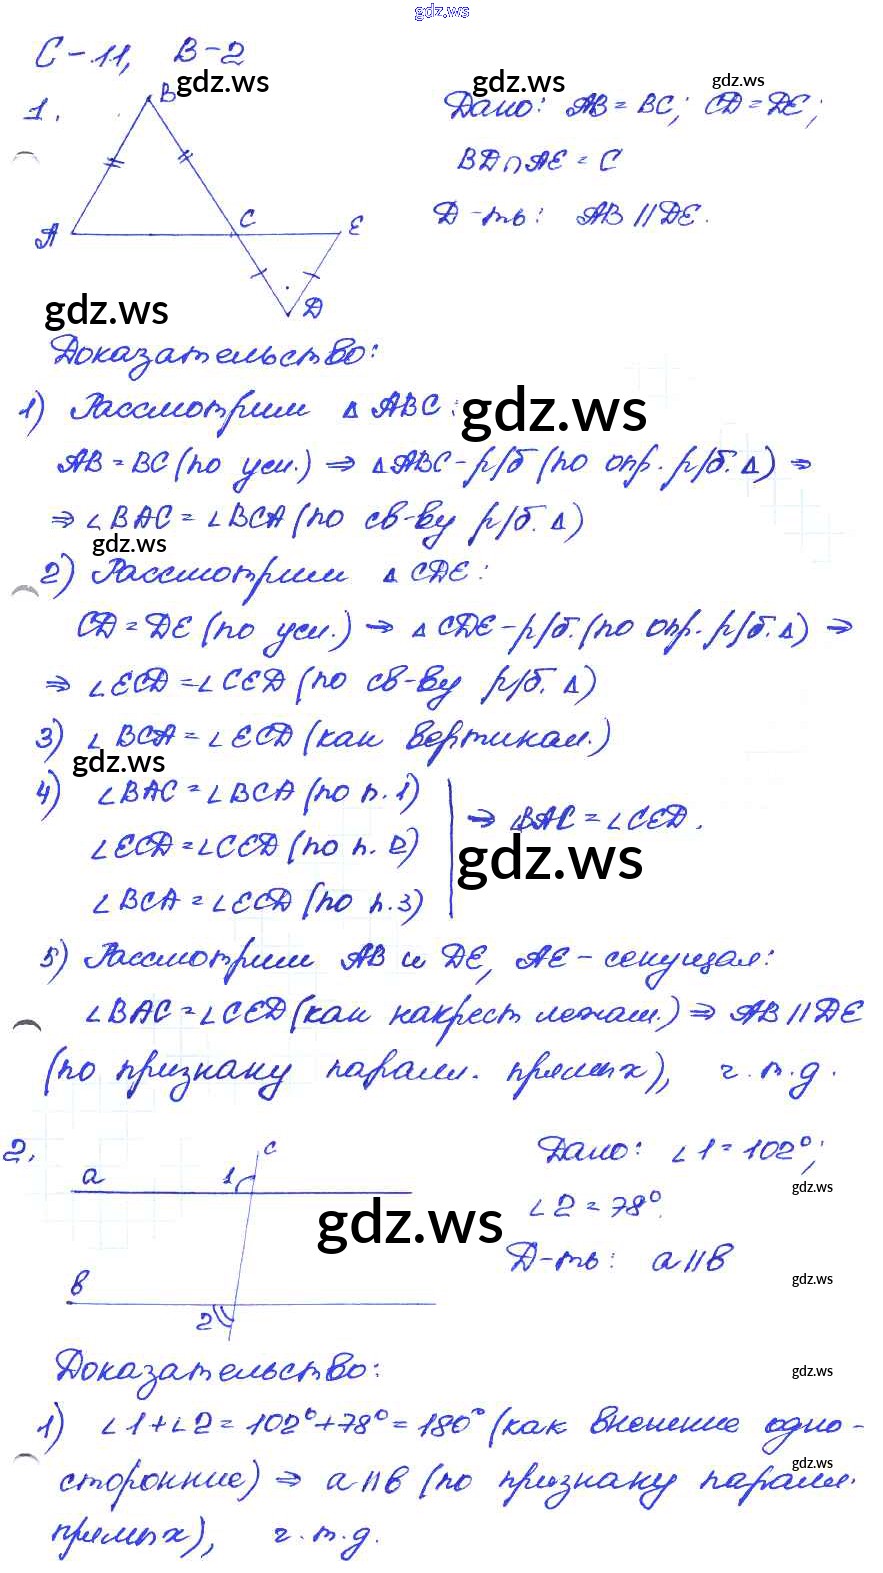 gdz.ws
С-11, В-2
gdz.ws gdz.ws gdz.ws
1.
B
A
C
E
D
Дано: AB = BC; CD = DE;
BD∩AE = C
Д-ть: AB || DE.
gdz.ws
Доказательство:
1) Рассмотрим △ ABC:
gdz.ws
AB = BC (по усл.) ⇒ △ABC - р/б (по опр. р/б. △) ⇒
⇒ ∠BAC = ∠BCA (по св-ву р/б. △)
gdz.ws
2) Рассмотрим △ CDE:
CD = DE (по усл.) ⇒ △ CDE - р/б. (по опр. р/б. △) ⇒
⇒ ∠ECD = ∠CED (по св-ву р/б. △)
3) ∠BCA = ∠ECD (как вертикал.)
gdz.ws
4) ∠BAC = ∠BCA (по п. 1)
∠ECD = ∠CED (по п. 2)
∠BCA = ∠ECD (по п. 3)
⇒ ∠BAC = ∠CED.
gdz.ws
5) Рассмотрим AB и DE, AE - секущая:
∠BAC = ∠CED (как накрест лежащ.) ⇒ AB || DE
(по признаку паралл. прямых), ч.т.д.
2.
a
1
c
b
2
gdz.ws
Дано: ∠1 = 102°;
gdz.ws
∠2 = 78°.
Д-ть: a || b
gdz.ws
Доказательство:
gdz.ws
1) ∠1 + ∠2 = 102° + 78° = 180° (как внешние одно-
gdz.ws
сторонние) ⇒ a || b (по признаку паралл.
прямых), ч.т.д.